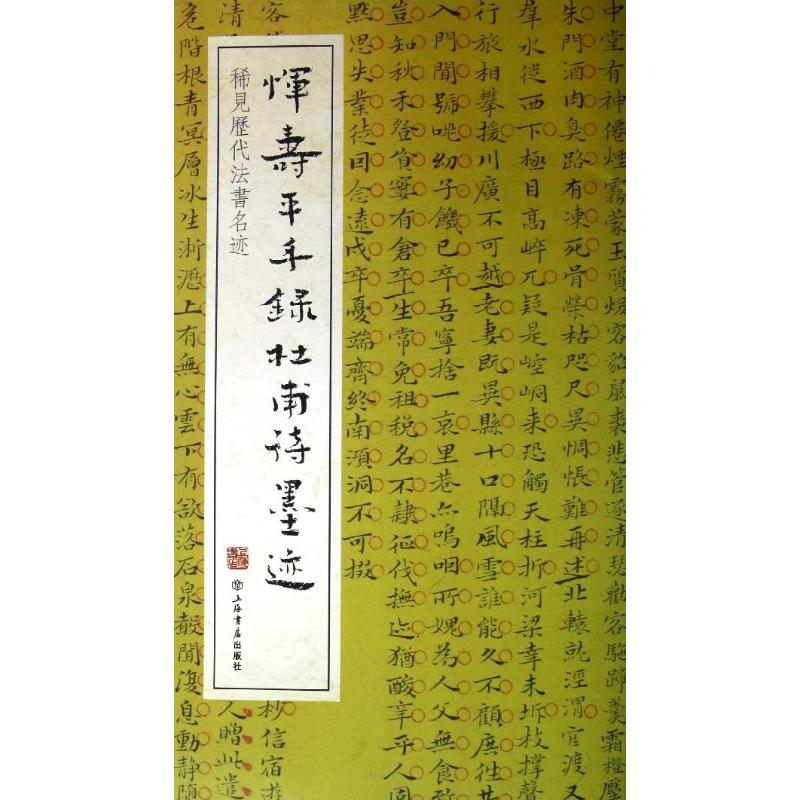 中堂有神僊煙霧蒙玉質煖客貂鼠裘悲管逐清瑟勸客駞蹄羹霜橙壓
朱門酒肉臭路有凍死骨榮枯咫尺異惆悵難再述北轅就涇渭官渡又
羣水從西下極目高崒兀疑是崆峒来恐觸天柱折河梁幸未坼枝撐聲
行旅相攀援川廣不可越老妻既異縣十口隔風雪誰能久不顧庶往共
入門聞號咷幼子饑已卒吾寧捨一哀里巷亦嗚咽所媿為人父無食致
豈知秋禾登貧窶有倉卒生常免租税名不隷征伐撫迹猶酸辛平人固
默思失業徒因念遠戍卒憂端齊終南澒洞不可掇
惲壽平手録杜甫詩墨迹
稀見歷代法書名迹
上海書店出版社
客
杪信宿遊
清
人贈此遣
危階根青冥層冰生淅瀝上有無心雲下有欲落石泉聲聞復息動静随